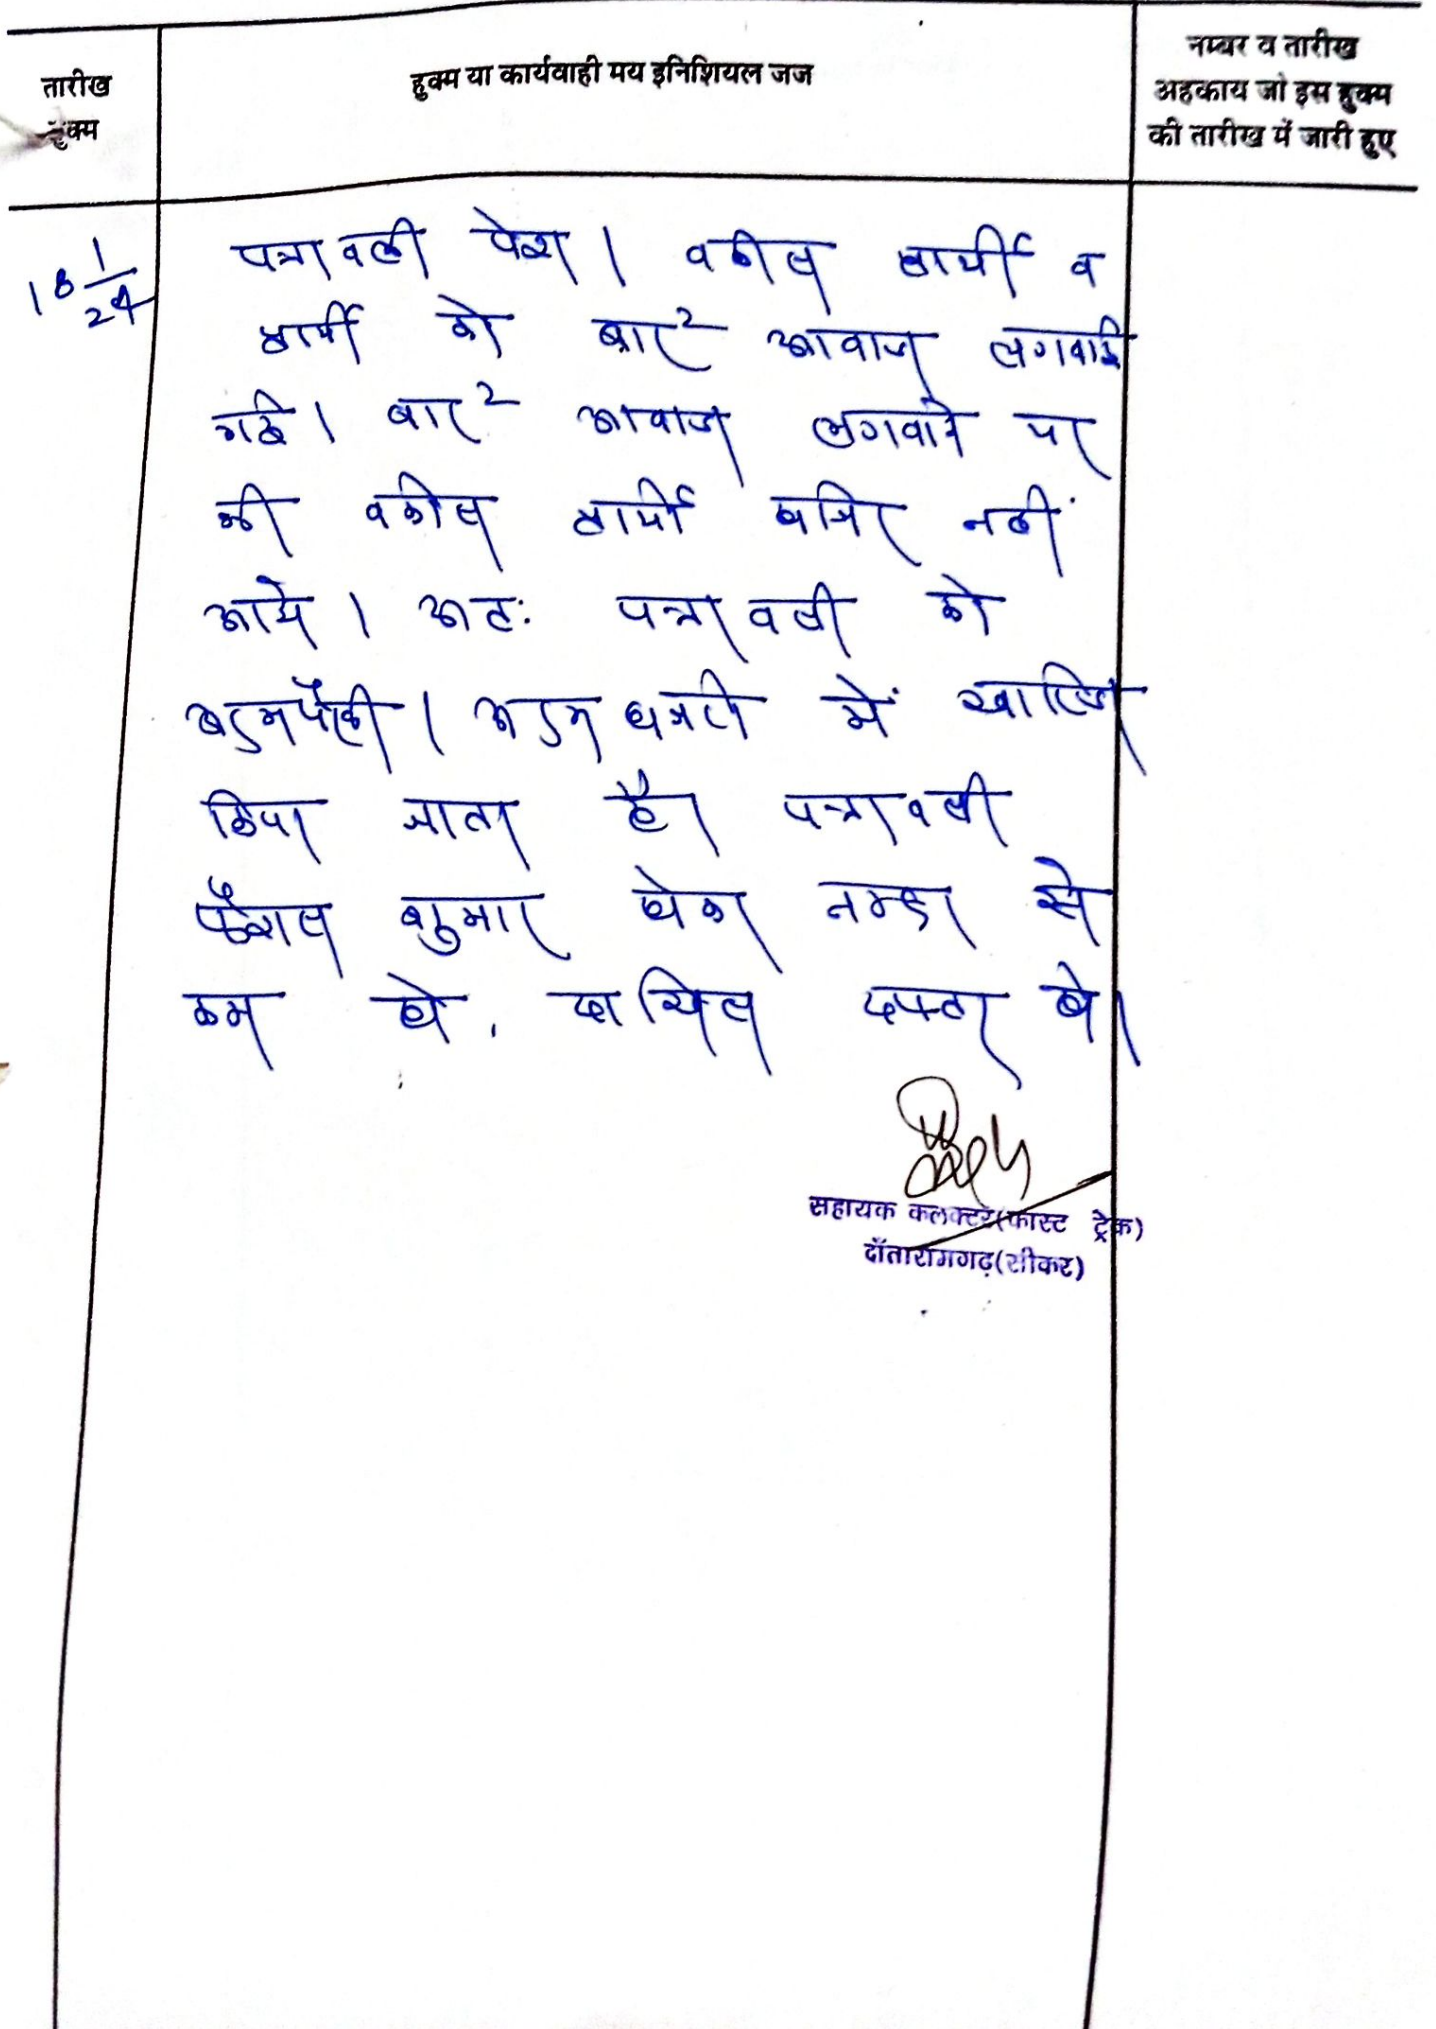 तारीख
हुक्म
हुक्म या कार्यवाही मय इनिशियल जज
नम्बर व तारीख
अहकाय जो इस हुक्म
की तारीख में जारी हुए
18 1/24
पत्रावली पेश। वकील प्रार्थी व
प्रार्थी को बार² आवाज लगवाई
गई। बार² आवाज लगवाने पर
भी वकील प्रार्थी हाजिर नहीं
आये। अतः पत्रावली को
अदमपैरवी। अदम हाजरी में खारिज
किया जाता है। पत्रावली
फैशल शुमार होकर नम्बर से
कम हो. दाखिल दफ्तर हो।
सहायक कलक्टर(फास्ट ट्रेक)
दाँतारामगढ़(सीकर)